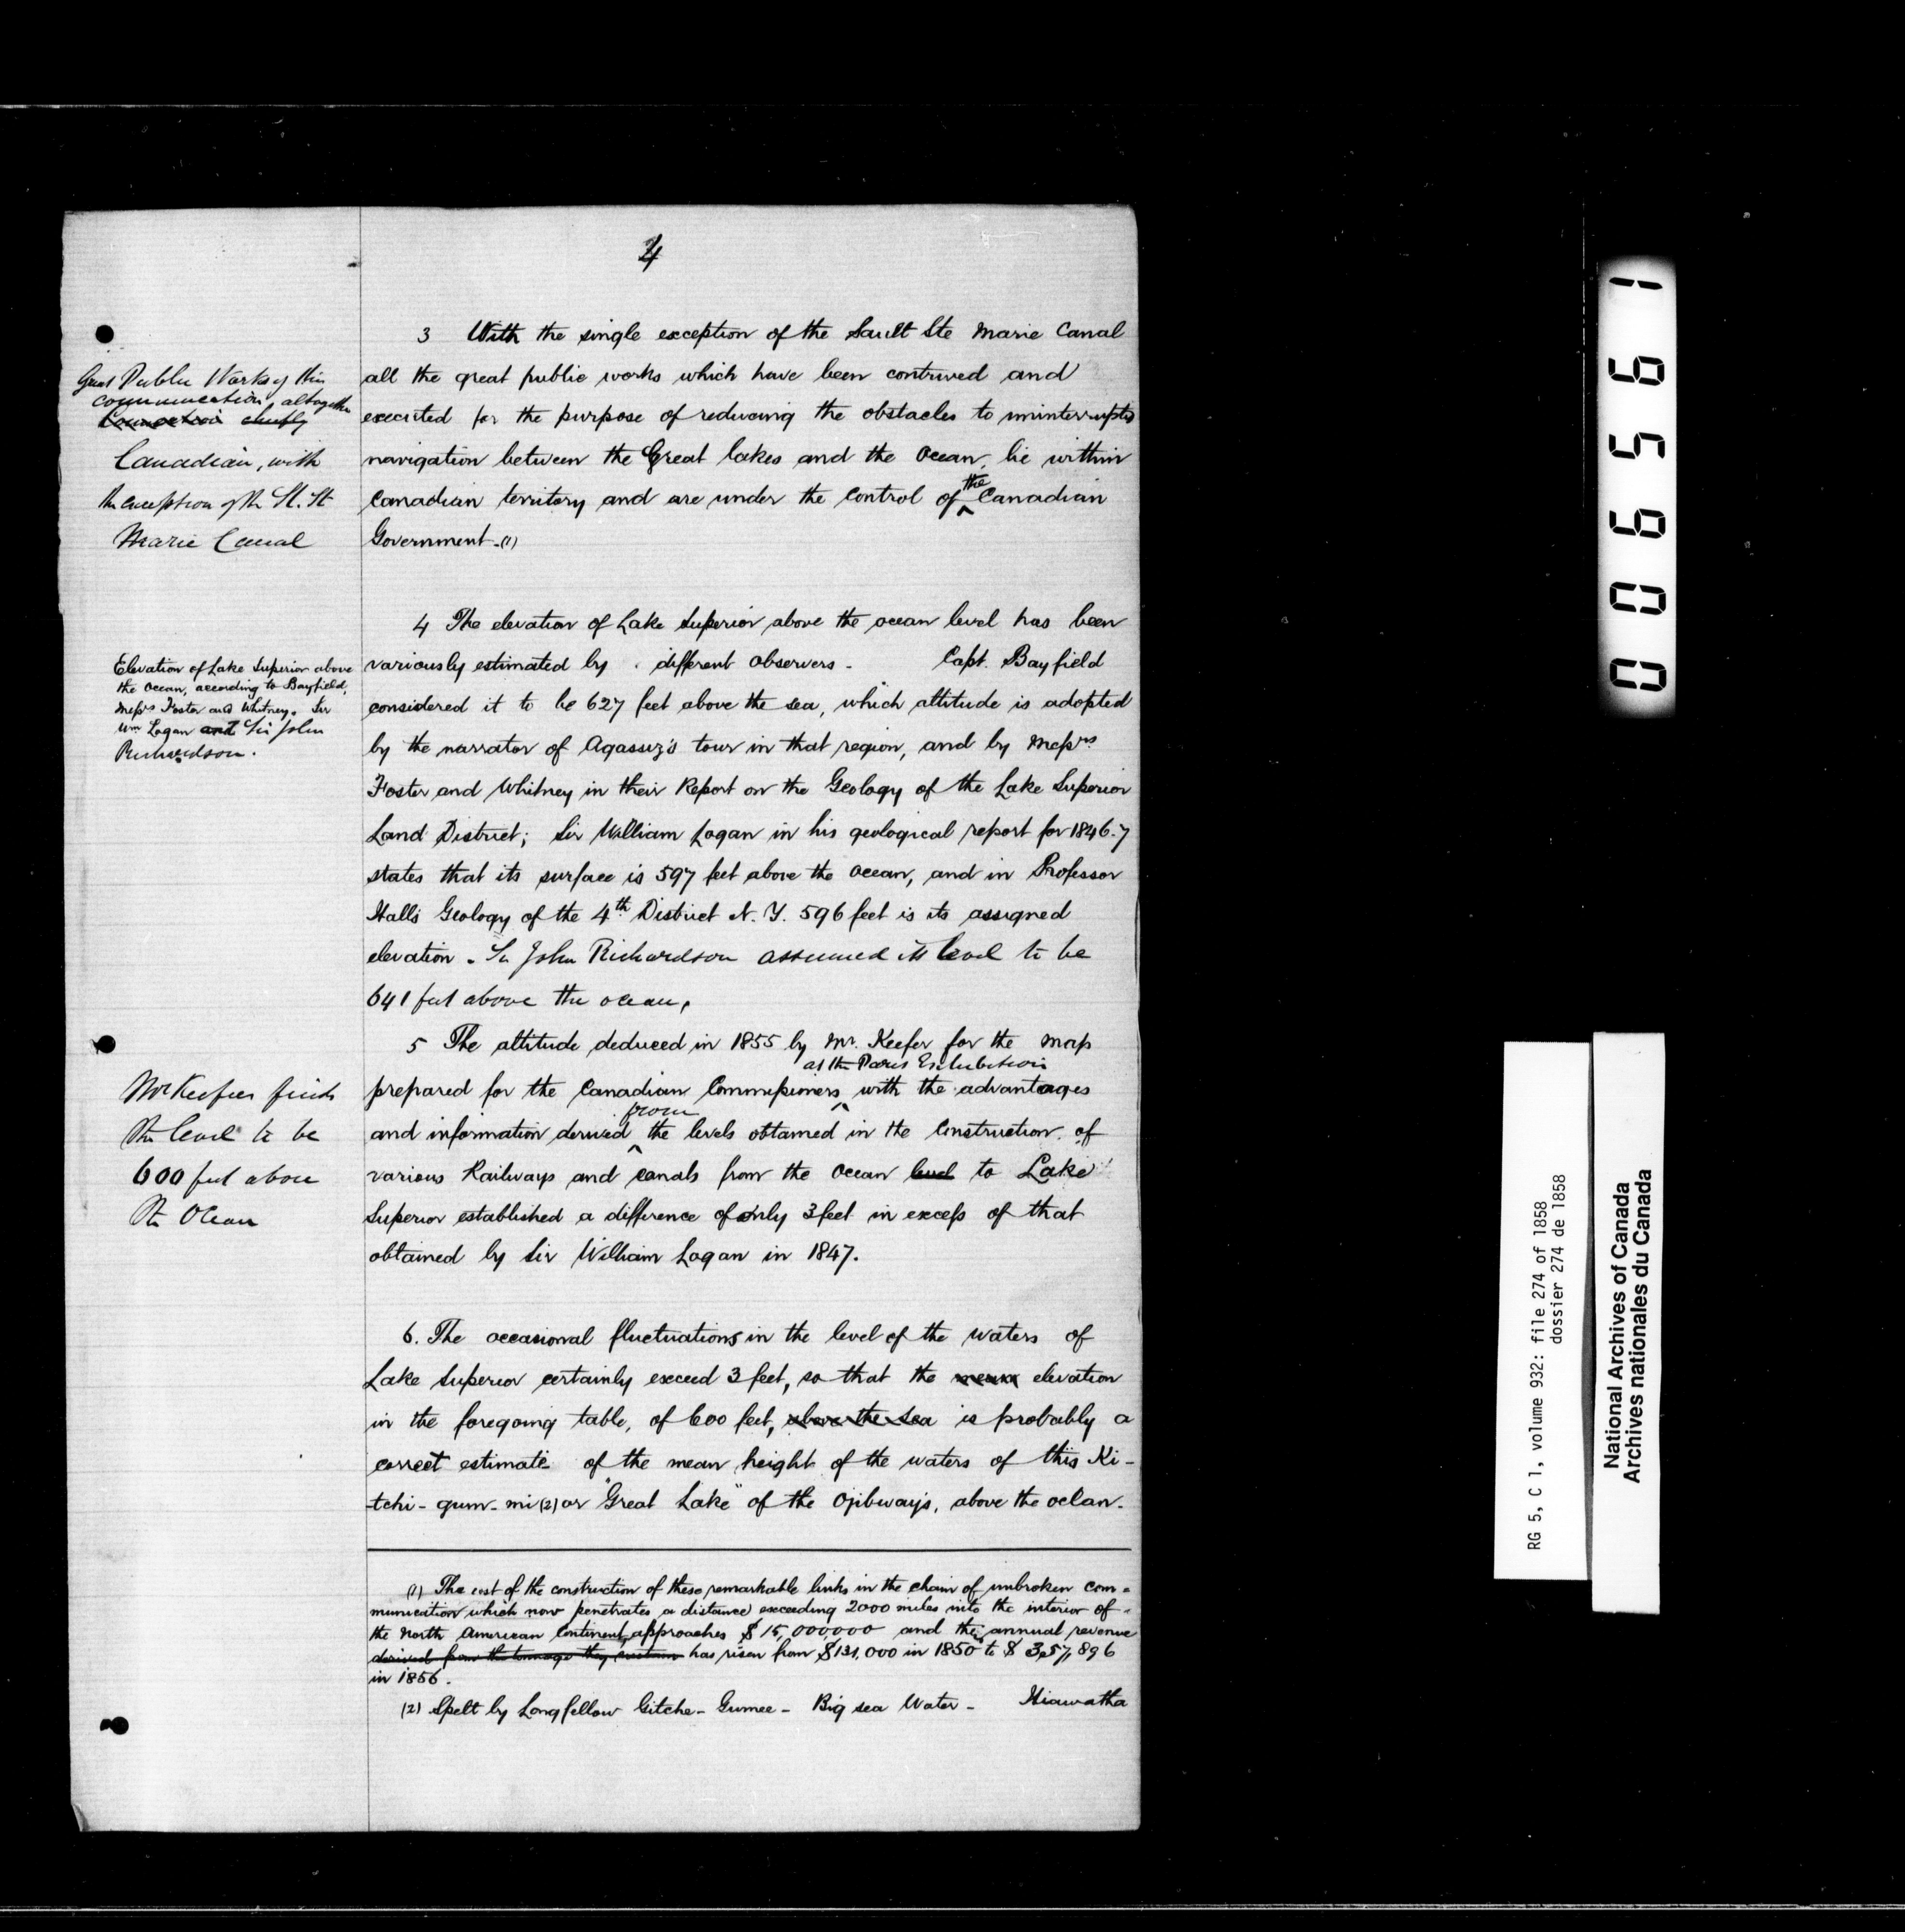 4
3 With the single exception of the Sault Ste Marie Canal
all the great public works which have been contrived and
executed for the purpose of reducing the obstacles to uninterrupted
navigation between the Great lakes and the Ocean, lie within
Canadian territory and are under the control of the Canadian
Government - (1)
Great Public Works of this
communication, altogether
Connection chiefly
Canadian, with
the exception of the St. St
Marie Canal
4 The elevation of Lake Superior above the ocean level has been
variously estimated by different observers - Capt. Bayfield
considered it to be 627 feet above the sea, which altitude is adopted
by the narrator of Agassiz's tour in that region, and by Messrs
Foster and Whitney in their Report on the Geology of the Lake Superior
Land District; Sir William Logan in his geological report for 1846-7
states that its surface is 597 feet above the Ocean, and in Professor
Halls Geology of the 4th District N. Y. 596 feet is its assigned
elevation. Sir John Richardson assumed its level to be
641 feet above the ocean.
Elevation of Lake Superior above
the Ocean, according to Bayfield,
Messrs Foster and Whitney. Sir
Wm Logan and Sir John
Richardson.
5 The altitude deduced in 1855 by Mr. Keefer for the map
at the Paris Exhibition
prepared for the Canadian Commissioners with the advantages
from
and information derived the levels obtained in the Construction of
various Railways and canals from the Ocean level to Lake
Superior established a difference of only 3 feet in excess of that
obtained by Sir William Logan in 1847.
Mr Keefer finds
the level to be
600 feet above
the Ocean
6. The occasional fluctuations in the level of the waters of
Lake Superior certainly exceed 3 feet, so that the mean elevation
in the foregoing table, of 600 feet, above the sea is probably a
correct estimate of the mean height of the waters of this Ki-
-tchi-gum-mi (2) or "Great Lake" of the Ojibways, above the ocean.
(1) The cost of the construction of these remarkable links in the chain of unbroken com-
munication which now penetrates a distance exceeding 2000 miles into the interior of
the North American Continent, approaches $15,000,000 and their annual revenue
derived from the tonnage they sustain has risen from $131,000 in 1850 to $357,896
in 1856.
(2) Spelt by Longfellow Gitche-Gumee - Big sea Water - Hiawatha
006561
RG 5, C 1, volume 932: file 274 of 1858
dossier 274 de 1858
National Archives of Canada
Archives nationales du Canada